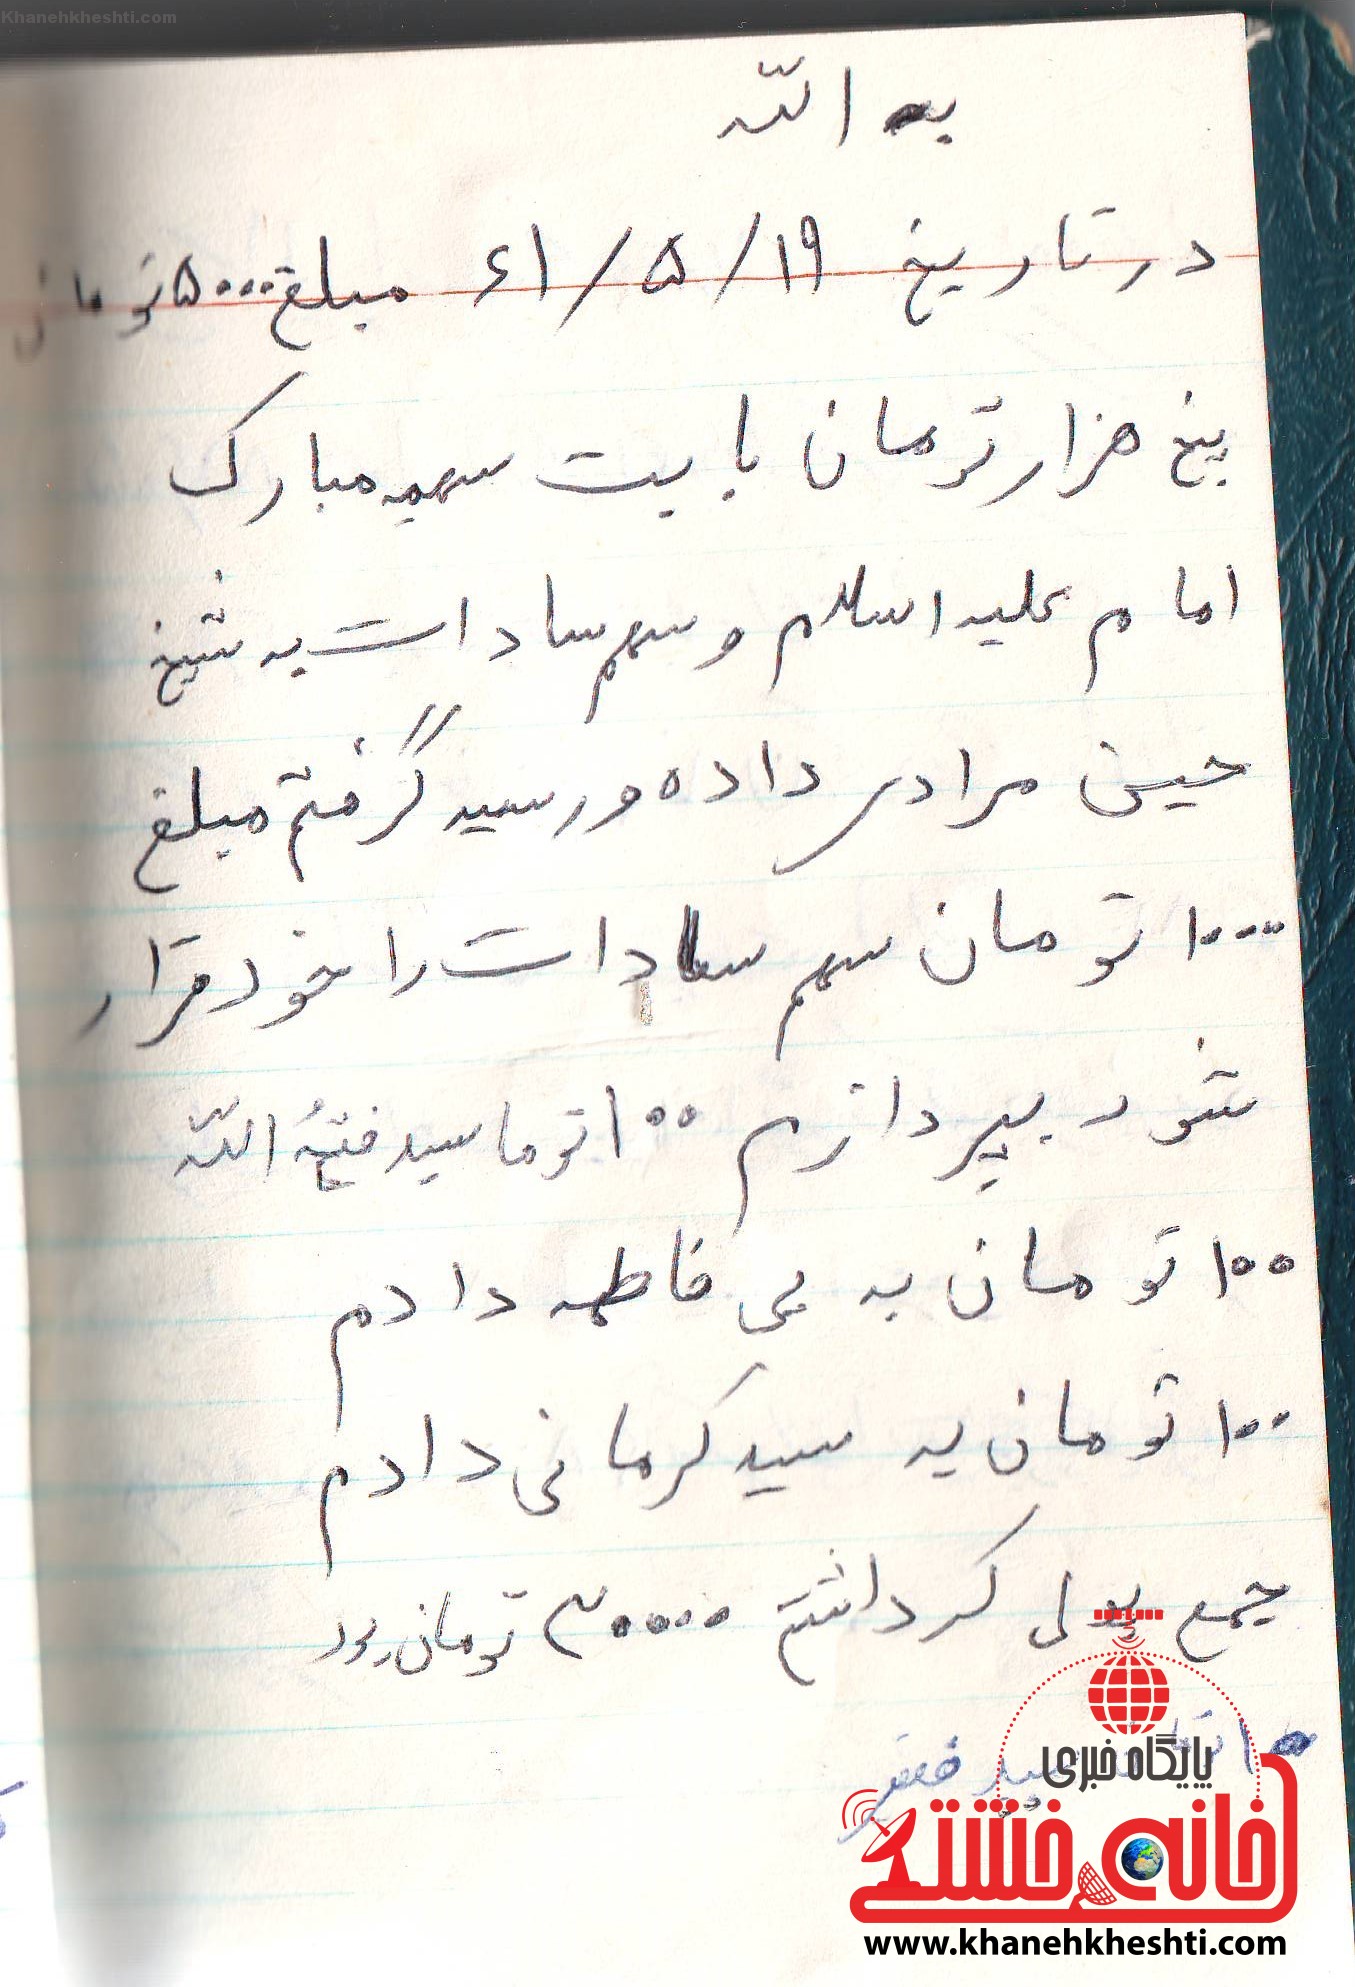 Khanehkheshti.com
به الله
در تاریخ ۱۹/۵/۶۱ مبلغ ۵۰۰۰ تومان
پنج هزار تومان بابت سهمیه مبارک
امام علیه اسلام و سهم سادات به شیخ
حسین مرادی داده و رسید گرفتم مبلغ
۱۰۰۰ تومان سهم سادات را خود قرار
شود بپردازم ۱۰۰ توما سید فتح الله
۱۰۰ تومان به بی فاطمه دادم
۱۰۰ تومان به سید کرمانی دادم
جمع پولی که داشتم ۳۰۰۰۰ تومان بود
سید فقیر
پایگاه خبری
خانه خشتی
www.khanehkheshti.com